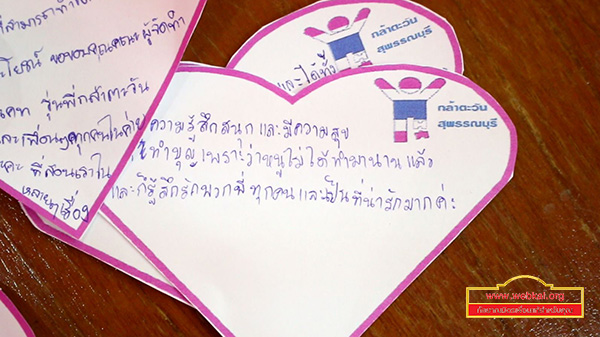 ที่สามารถทำให้
โยชน์ ขอขอบคุณคณะผู้จัดทำ
รุ่นพี่กล้าตะวัน
และเพื่อนๆทุกคนในค่าย
ที่สอนเราใน
หลายๆเรื่อง
และได้ทั้ง
กล้าตะวัน
สุพรรณบุรี
กล้าตะวัน
สุพรรณบุรี
ความรู้สึกสนุกและมีความสุข
ทำบุญเพราะว่าหนูไม่ได้ทำมานานแล้ว
และก็รู้สึกรักพวกพี่ทุกคนและเป็นที่น่ารักมากค่ะ
www.webkal.org